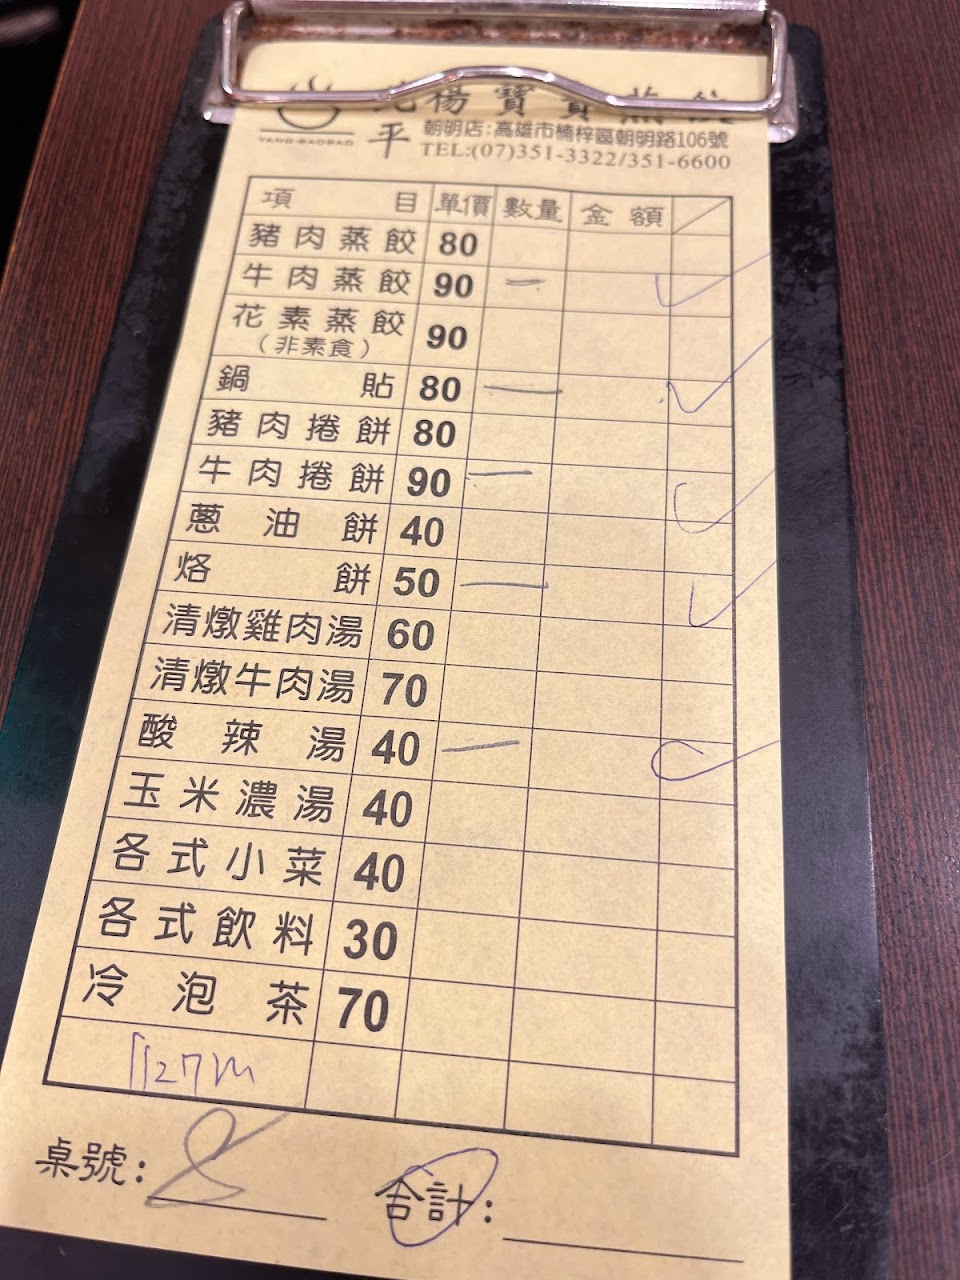 楊寶寶蒸餃
YANG-BAOBAO
平
朝明店:高雄市楠梓區朝明路106號
TEL:(07)351-3322/351-6600
項目 單價 數量 金額
豬肉蒸餃 80
牛肉蒸餃 90 一
花素蒸餃 90
(非素食)
鍋貼 80 一
豬肉捲餅 80
牛肉捲餅 90 一
蔥油餅 40
烙餅 50 一
清燉雞肉湯 60
清燉牛肉湯 70
酸辣湯 40 一
玉米濃湯 40
各式小菜 40
各式飲料 30
冷泡茶 70
桌號: 8 合計: